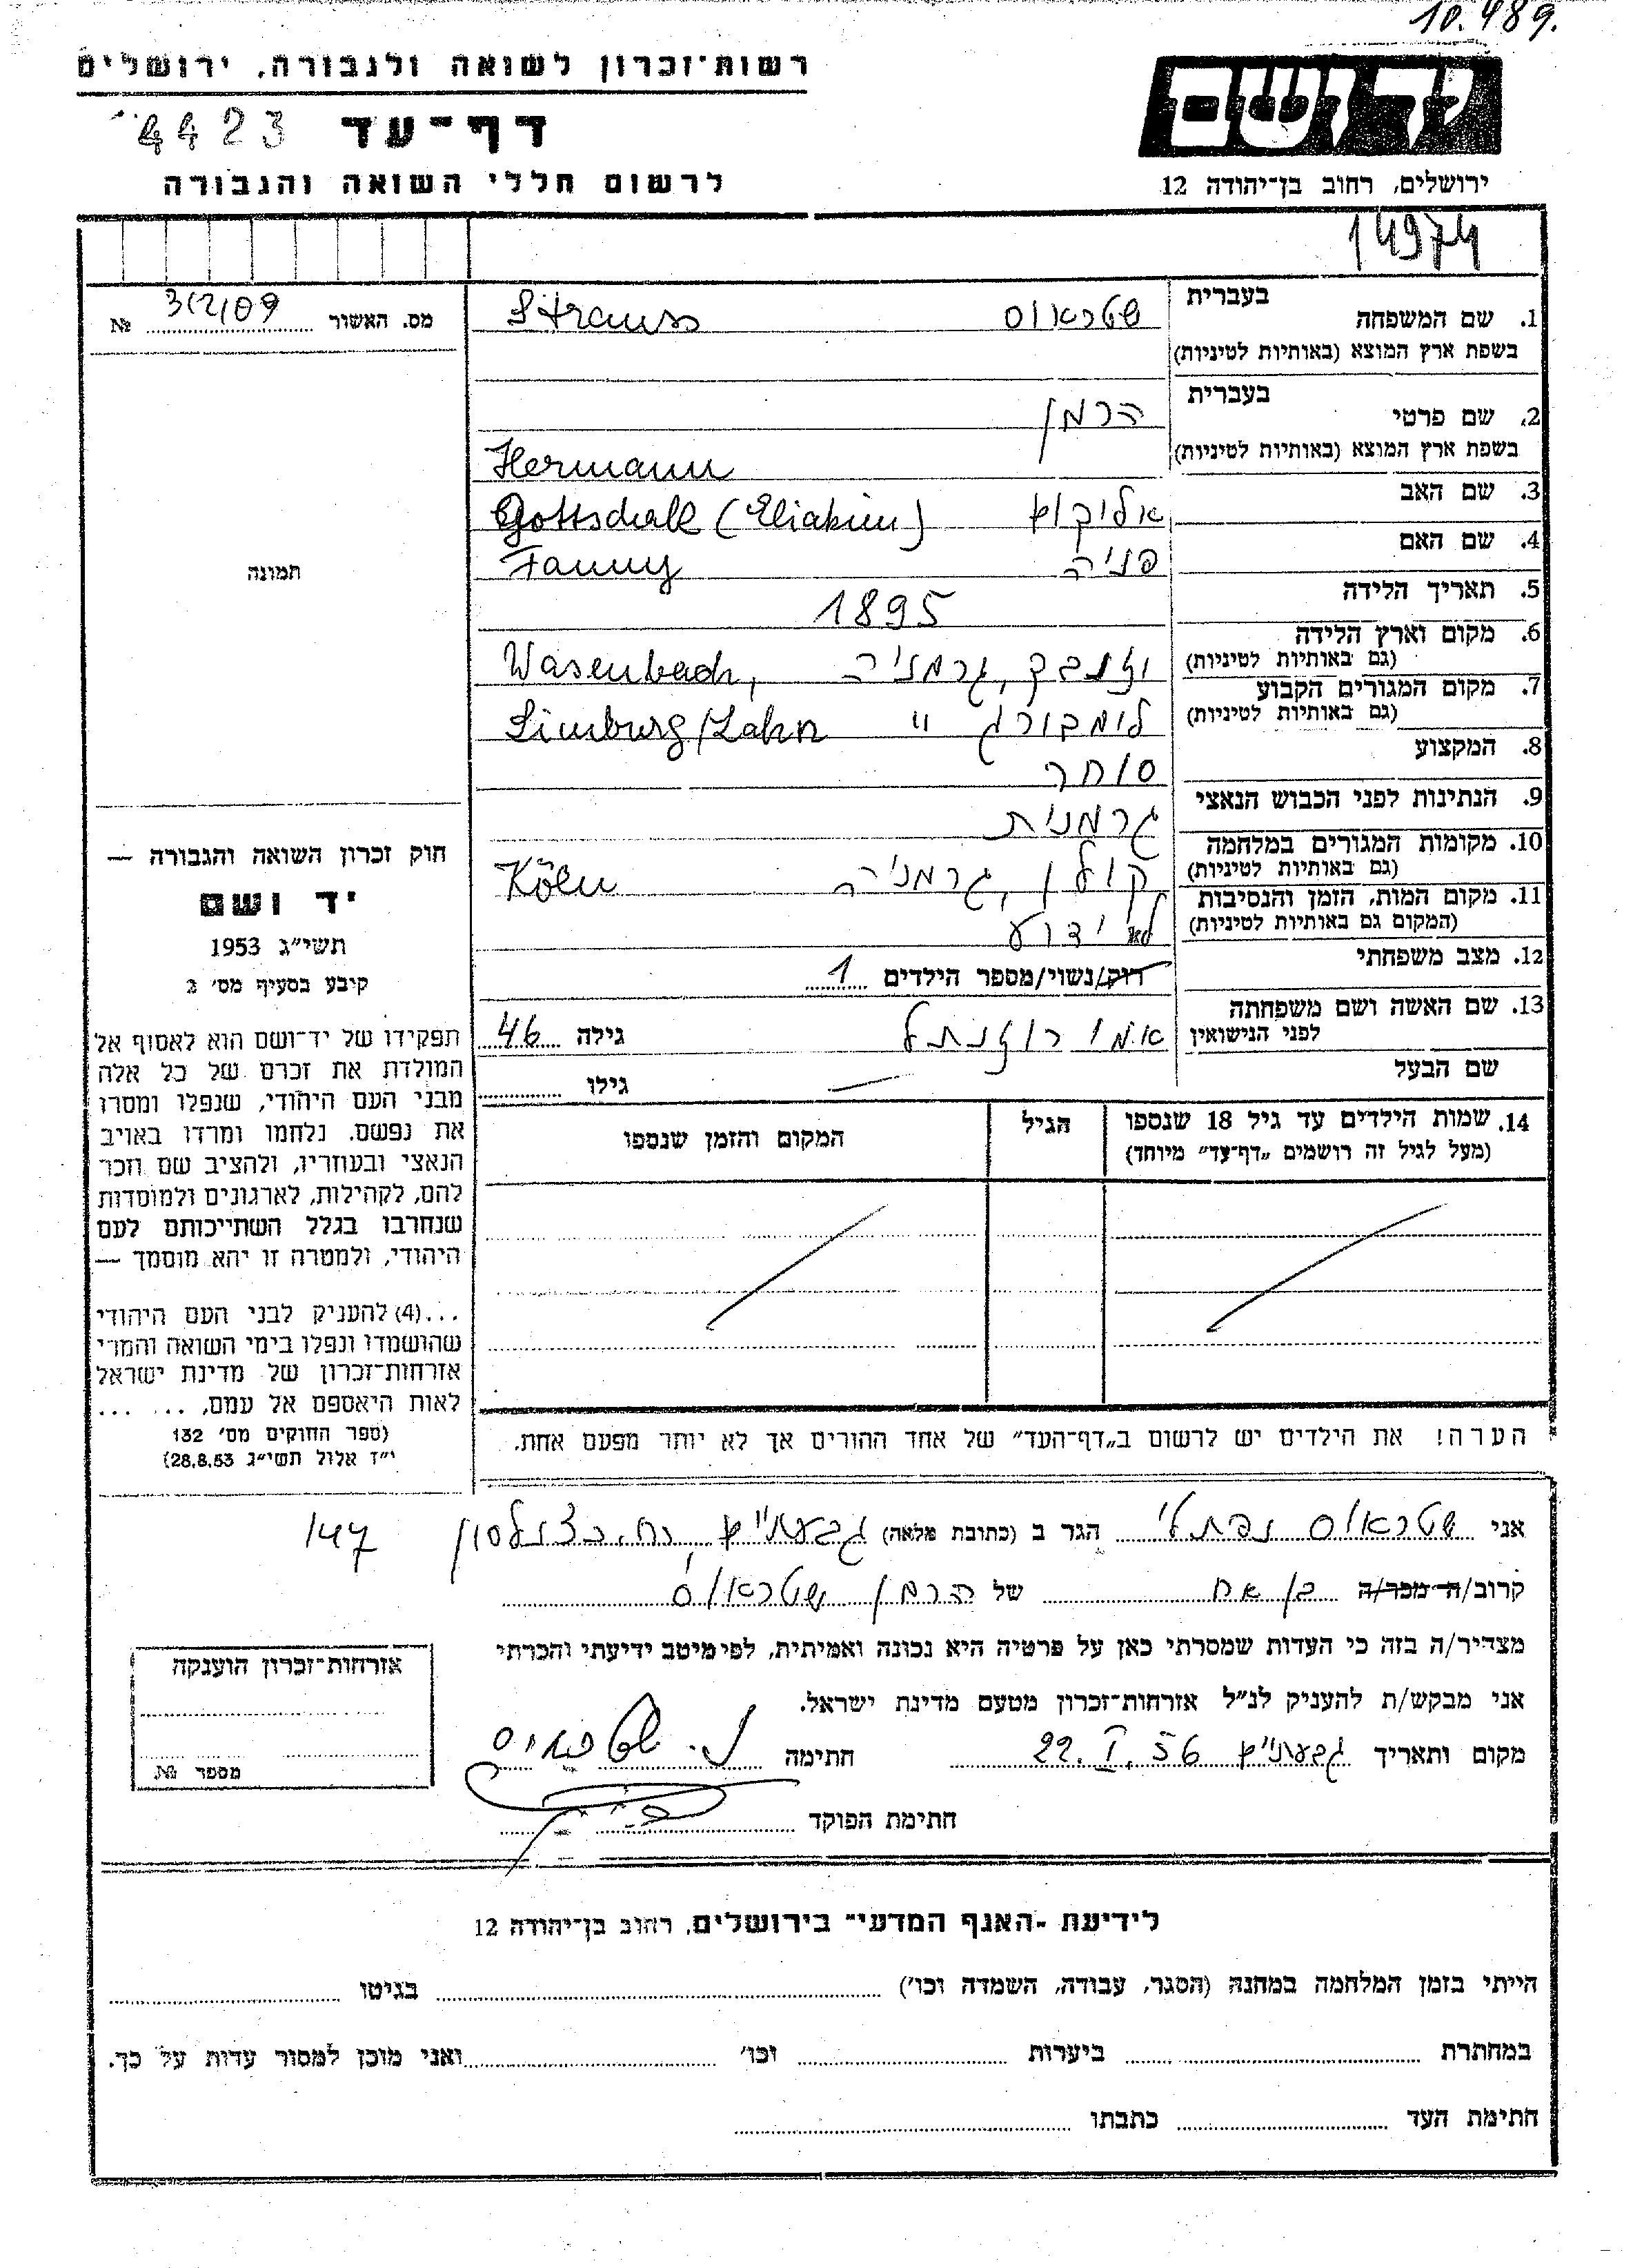 10.489.
רשות־זכרון לשואה ולגבורה, ירושלים
ידושם
דף־עד 4423
לרשום חללי השואה והגבורה
ירושלים, רחוב בן־יהודה 12
14974
מס. האשור № 312109
1. שם המשפחה בעברית שטראוס Strauss
בשפת ארץ המוצא (באותיות לטיניות)
2. שם פרטי בעברית הרמן
בשפת ארץ המוצא (באותיות לטיניות) Hermann
3. שם האב אליקום Gottschall (Eliakim)
4. שם האם פניה Fanny
5. תאריך הלידה 1895
6. מקום וארץ הלידה (גם באותיות לטיניות) וזנבך, גרמניה Wasenbach,
7. מקום המגורים הקבוע (גם באותיות לטיניות) לימבורג " Limburg/Lahn
8. המקצוע סוחר
9. הנתינות לפני הכבוש הנאצי גרמנית
10. מקומות המגורים במלחמה (גם באותיות לטיניות) קולן, גרמניה Köln
11. מקום המות, הזמן והנסיבות (המקום גם באותיות לטיניות) לא ידוע
12. מצב משפחתי רוק/נשוי/מספר הילדים 1
13. שם האשה ושם משפחתה לפני הנישואין אמי רוזנתל גילה 46
שם הבעל גילו
14. שמות הילדים עד גיל 18 שנספו הגיל המקום והזמן שנספו
(מעל לגיל זה רושמים "דף־עד" מיוחד)
הערה! את הילדים יש לרשום ב"דף־העד" של אחד ההורים אך לא יותר מפעם אחת.
תמונה
חוק זכרון השואה והגבורה —
יד ושם
תשי"ג 1953
קיבע בסעיף מס' 2
תפקידו של יד־ושם הוא לאסוף אל
המולדת את זכרם של כל אלה
מבני העם היהודי, שנפלו ומסרו
את נפשם. נלחמו ומרדו באויב
הנאצי ובעוזריו, ולהציב שם וזכר
להם, לקהילות, לארגונים ולמוסדות
שנחרבו בגלל השתייכותם לעם
היהודי, ולמטרה זו יהא מוסמך —
...(4) להעניק לבני העם היהודי
שהושמדו ונפלו בימי השואה והמרי
אזרחות־זכרון של מדינת ישראל
לאות היאספם אל עמם, ... ...
(ספר החוקים מס' 132
י"ז אלול תשי"ג 28.8.53)
אני שטראוס נפתלי הגר ב (כתובת מלאה) גבעתיים, רח. כצנלסון 147
קרוב/ה מכר/ה בן אח של הרמן שטראוס
מצהיר/ה בזה כי העדות שמסרתי כאן על פרטיה היא נכונה ואמיתית, לפי מיטב ידיעתי והכרתי
אני מבקש/ת להעניק לנ"ל אזרחות־זכרון מטעם מדינת ישראל.
מקום ותאריך גבעתיים 22. I. 56 חתימה נ. שטראוס
חתימת הפוקד
אזרחות־זכרון הוענקה
מספר №
לידיעת "האגף המדעי" בירושלים, רחוב בן־יהודה 12
הייתי בזמן המלחמה במחנה (הסגר, עבודה, השמדה וכו') בגיטו
במחתרת ביערות וכו' ואני מוכן למסור עדות על כך.
חתימת העד כתבתו